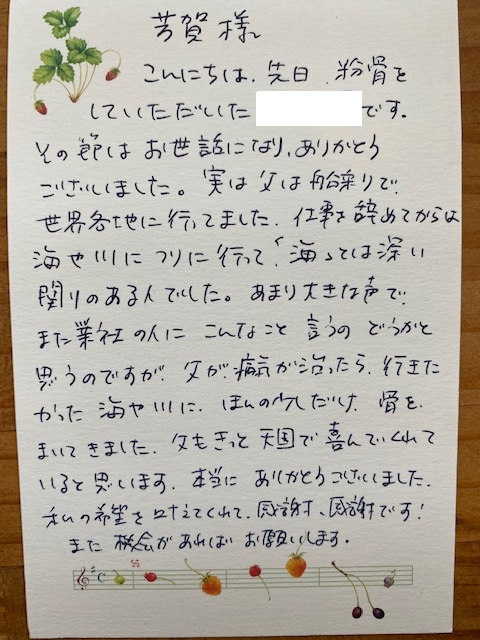 芳賀様
こんにちは、先日、粉骨を
していただいた です.
その節は お世話になり、ありがとう
ございました。実は父は船乗りで、
世界各地に行ってました. 仕事を辞めてからは
海や川に つりに行って、海っとは深い
関りのある人でした。あまり大きな声で、
また業社の人に こんなこと 言うの どうかと
思うのですが、父が、病気が治ったら、行きた
かった 海や川に、ほんの少しだけ、骨を、
まいてきました. 父もきっと 天国で 喜んでくれて
いると思います. 本当に ありがとうございました.
私の希望を叶えてくれて、感謝、感謝です!
また 機会があれば お願いします.